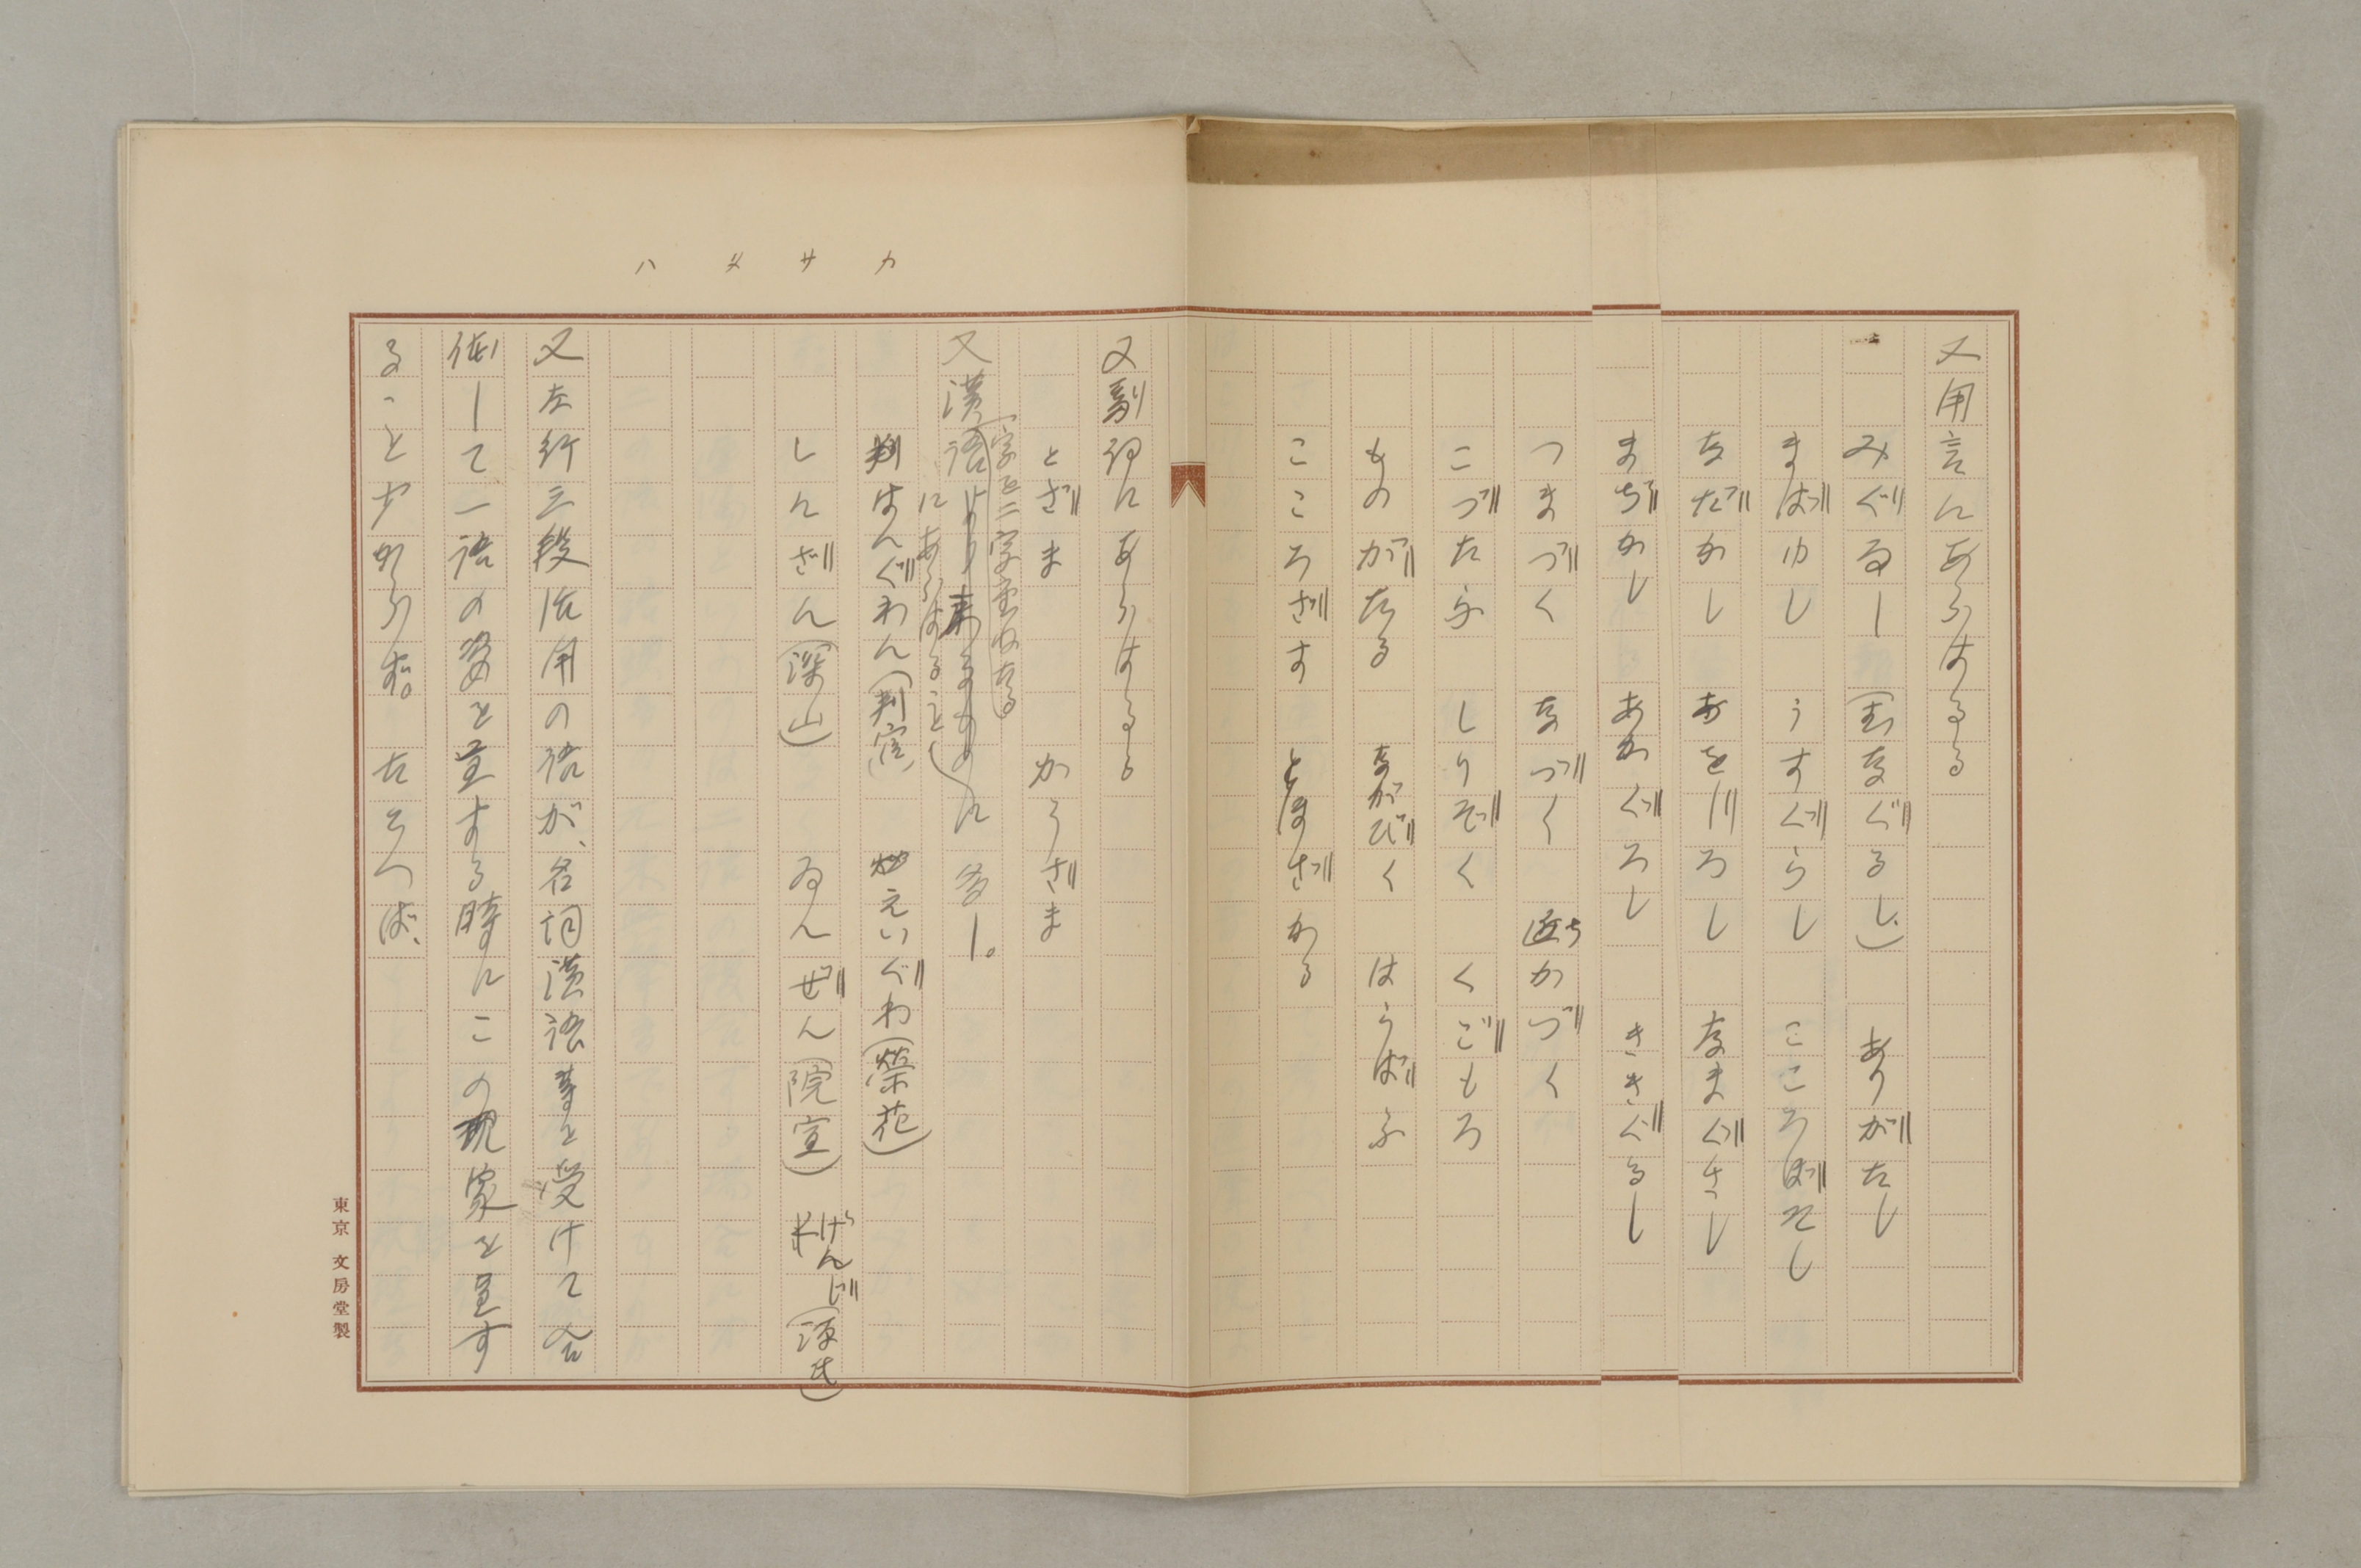 又用言にあらはるる
みぐるし(まなぐるし) ありがたし
まばゆし うすぐらし こころぼそし
なだかし あをじろし なまぐさし
まぢかし あかぐろし ききぐるし
つまづく なづく ちかづく
こづたふ しりぞく くごもろ
ものがたる ながびく はうばふ
こころざす とほざかる
又副詞にあらはるる
とざま かうざま
又漢語(字を二字重ねたる
にあらはること)に多し。
はんぐわん(判官) えいぐわ(榮花)
しんざん(深山) ゐんぜん(院宣) げんじ(源氏)
又左行三段活用の語が、名詞漢語等を受けて合
體して一語の姿を呈する時にこの現象を呈す
ることすめからず。たとへば、
カ サ タ ハ
東京 文房堂製